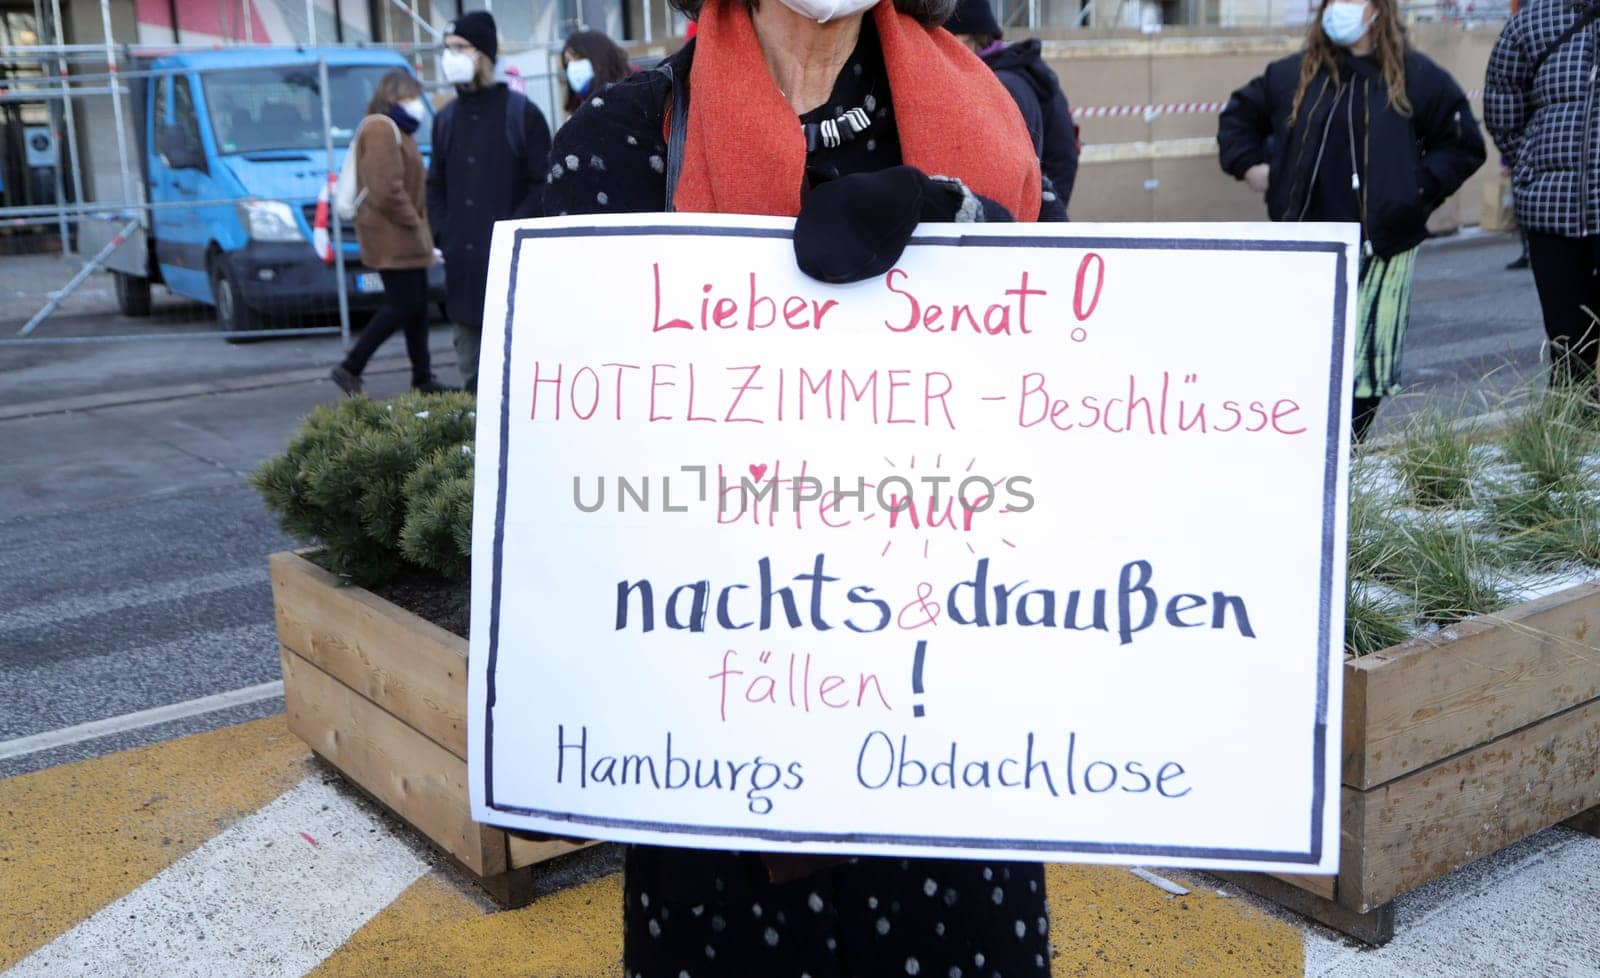 Lieber Senat!
HOTELZIMMER - Beschlüsse
bitte nur
nachts & draußen
fällen!
Hamburgs Obdachlose
UNLIMPHOTOS